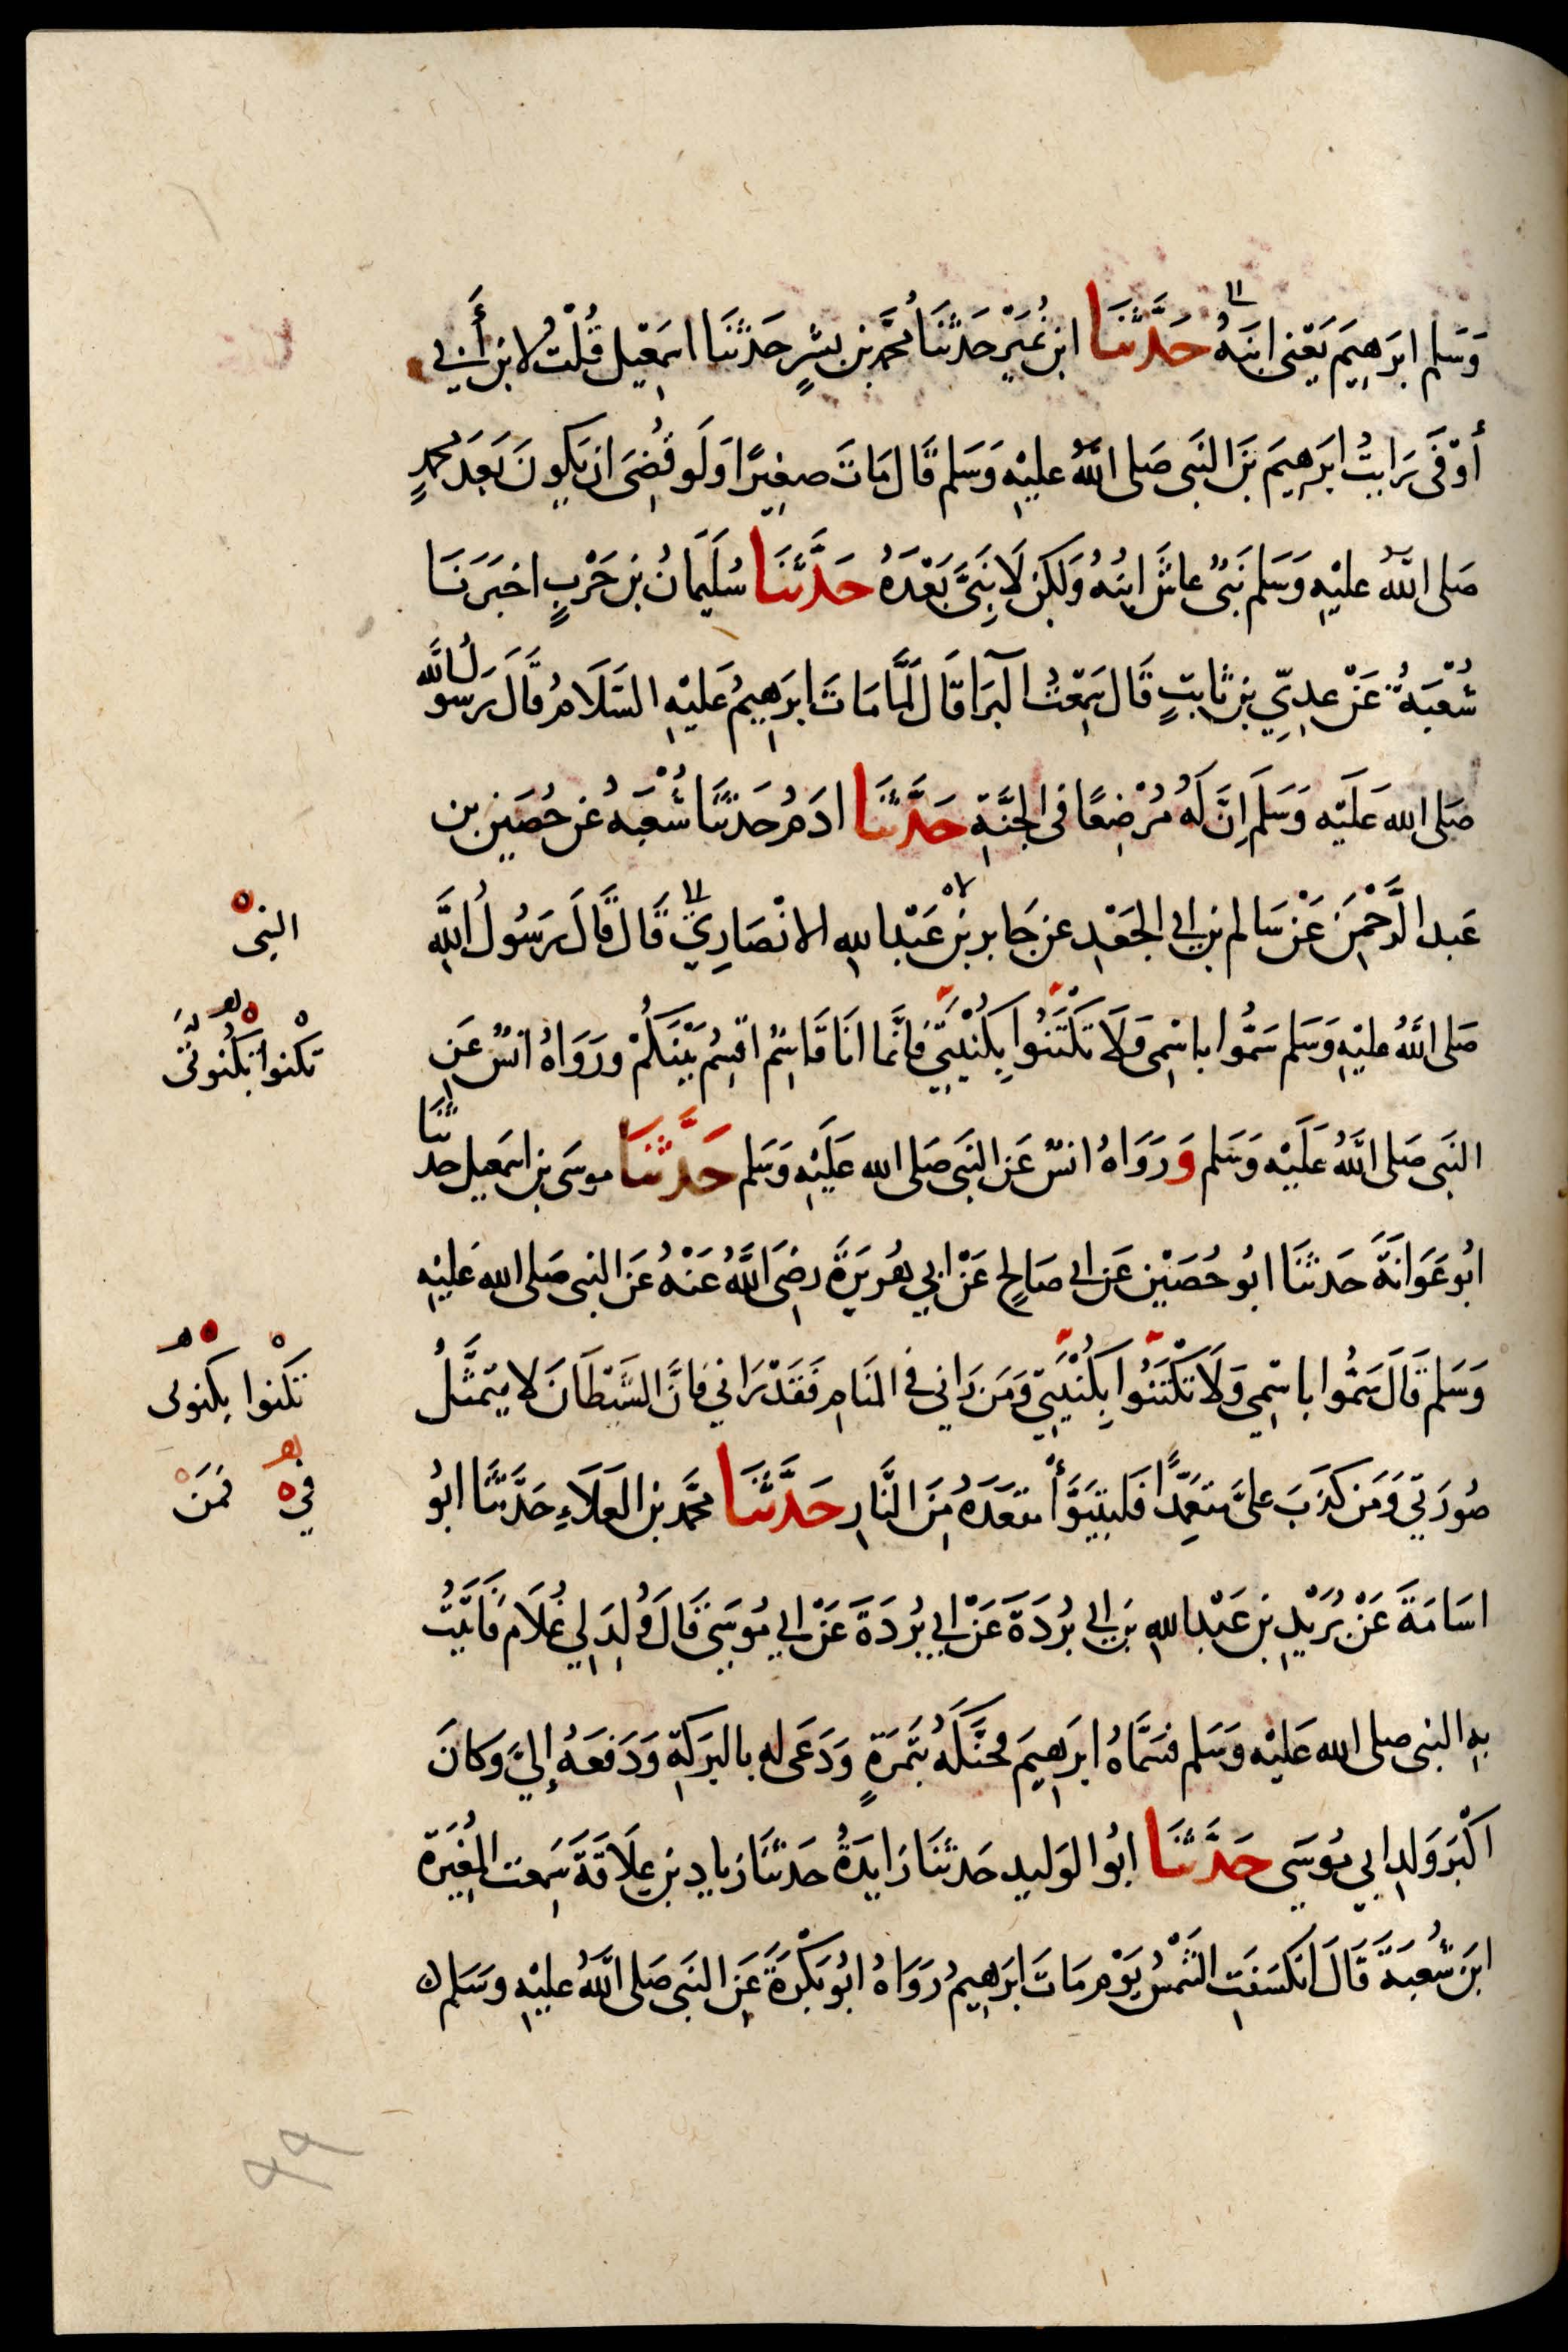 وَسَلم ابرَهِيمَ يَعْنى ابنَهُ حَدَّثَنَا ابن نُمَيْرٍ حَدثَنَا مُحَمَّد بن بشرٍ حَدثَنَا اسمَعِيل قُلْتُ لابن أَبي
أوْفَى رَايتُ ابرَهِيمَ بنَ النَبى صَلى اللَّهُ عليْهِ وَسَلم قَال مَاتَ صغِيرًا وَلَو قُضِىَ ان يَكونَ بَعدَ محمدٍ
صَلى اللَّهُ عليْهِ وَسَلم نَبىٌّ عاشَ ابنُهُ وَلَكِن لَا نَبِىَّ بَعْدَهُ حَدَّثَنَا سُلَيمَانُ بن حَرْبٍ اخبَرَنَا
شُعْبَةُ عَنْ عدِيِّ بن ثابتٍ قَال سَمِعْتُ البَرَا قَال لَمَّا مَاتَ ابرَهِيمُ عَليْهِ السَّلَامُ قَالَ رَسُولُ اللَّه
صَلى الله عَليْه وَسَلَم اِنَّ لَهُ مُرْضِعًا فى الجَنَّةِ حَدَّثَنَا ادَمُ حَدثَنَا شُعْبَهُ عَن حُصَينِ بن
عَبد الرَّحْمِنَ عَنْ سَالم بن ابى الجَعْدِ عن جَابر بْن عَبْد اللهِ الانْصَارِيِّ قَال قَالَ رَسُولُ اللَّهِ
النبى
صَلى اللَّهُ عليْهِ وَسَلم سَمُّوا باسْمِى وَلَا تَكْتَنُوا بِكُنْيَتِي فَاِنَّما انَا قَاسِمٌ اقسِمُ بَيْنَكُمْ ورَوَاهُ انسٌ عَنِ
تكْنوا بكُنوتى
النَبى صَلى اللَّهُ عَلَيْه وَسَلم وَ رَوَاهُ انسٌ عَن النَبى صَلى الله عَلَيْهِ وَسَلم حَدَّثَنَا موسَى بن اسمَعيل حدثَنَا
ابُو عَوَانَةَ حَدثَنَا ابُو حُصَيْن عَن ابى صَالِحٍ عَنْ ابِي هُرَيرَةَ رضِىَ اللَّهُ عَنْهُ عَن النبى صَلى الله عَليْهِ
وَسَلم قَالَ سَمُّوا باسْمِي وَلَا تَكْتَنُوا بِكُنْيَتِي وَمَن رَاني في المنَامِ فَقَدْ رَاني فَانَّ الشَيْطَانَ لا يتَمثَّلُ
تكْنوا بكنوتى
صُورَتي وَمَن كذَبَ علىَّ متعَمِّدًا فَليتَبَوَّأْ مقعَدَهُ مِنَ النَّارِ حَدَّثَنَا محَمَّد بن العَلَاءِ حَدَّثَنَا ابُو
في فمَنْ
اسَامَةَ عَنْ بُرَيْدِ بن عَبْد اللهِ بن ابي بُرْدَةَ عَنْ ابي بُردَةَ عَنْ ابي مُوسَى قَالَ وُلِدَ لِي غُلَامٌ فَاتَيْتُ
بهِ النبى صلى الله عَليْه وَسَلم فسَمَّاهُ ابرَهِيمَ فحَنَّكَهُ بتَمرَةٍ وَدَعَى له بالبَرَكَةِ وَدَفعَهُ إِليَّ وَكانَ
اكْبَرَ وَلدِ ابِي مُوسَى حَدَّثَنَا ابُوا الوَليد حَدثَنَا زَايدَةُ حَدثَنَا زيادِ بن عِلَاقَةَ سَمِعت المغِيْرَةَ
ابنَ شُعبَةَ قَالَ انكسَفَتِ الشَّمْسُ يَوْم مَاتَ ابرَهِيمُ رَوَاهُ ابُو بَكْرَةَ عَنِ النبَى صَلى اللَّهُ عليْهِ وسَلم ه
٩٩